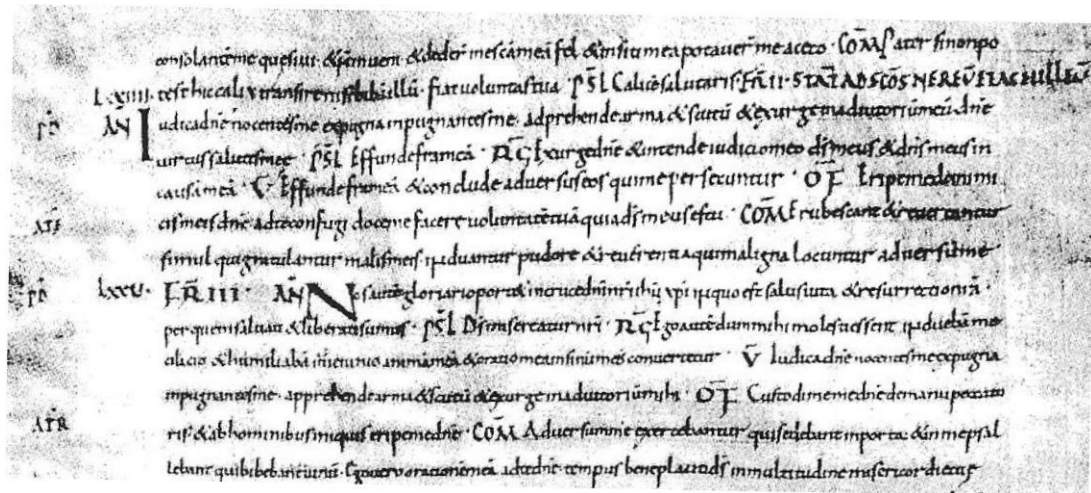 consolantē me quesiui · & n̄ inueni & deder̄ in escā meā fel & in siti mea potauer̄ me aceto · COM̄ Pater si non po
LXXIIII· test hic calix transire nisi bibā illū · fiat uoluntas tua · PSL̄ Calicē salutaris · FR̄ II · STAT̄ AD SCŌS NEREŪ ET ACHILLEŪ
PD̄ AÑ Iudica dnē nocentes me expugna inpugnantes me · adprehende arma & scutū & exurge in adiutoriū meū dnē
uirtus salutis mee · PSL̄ Effunde frameā · RG̅ Exurge dnē & intende iudicio meo dš meus & dnš meus in
causā meā · V̄ Effunde frameā & conclude aduersus eos qui me persecuntur · OF̄ Eripe me de inimi
ATF cis meis dnē ad te confugi doce me facere uoluntatē tuā quia dš meus es tu · COM̄ Erubescant & reuertantur
simul qui gratulantur malis meis · induantur pudore & reuerentia qui maligna locuntur aduersū me
PD̄ LXXV· FR̄ III · AÑ Nos autē gloriari oport& in cruce dn̄i nr̄i ihū xp̄i in quo est salus uita & resurrectio nr̄a ·
per quem saluati & liberati sumus · PSL̄ Ds̄ misereatur nr̄i · RG̅ Ego autē dum mihi molesti essent induebā me
cilicio & humiliabā in ieiunio animā meā & oratio mea in sinu meo conuertetur · V̄ Iudica dnē nocentes me expugna
inpugnantes me · apprehende arma & scutū & exurge in adiutoriū mihi · OF̄ Custodi me dnē de manu peccato
ATR ris · & ab hominibus iniquis eripe me dnē · COM̄ Aduersum me exercebantur qui sedebant in porta & in me psal
lebant qui bibebant uinū · Ego uero orationē meā ad te dnē · tempus beneplaciti dš in multitudine misericordie tue